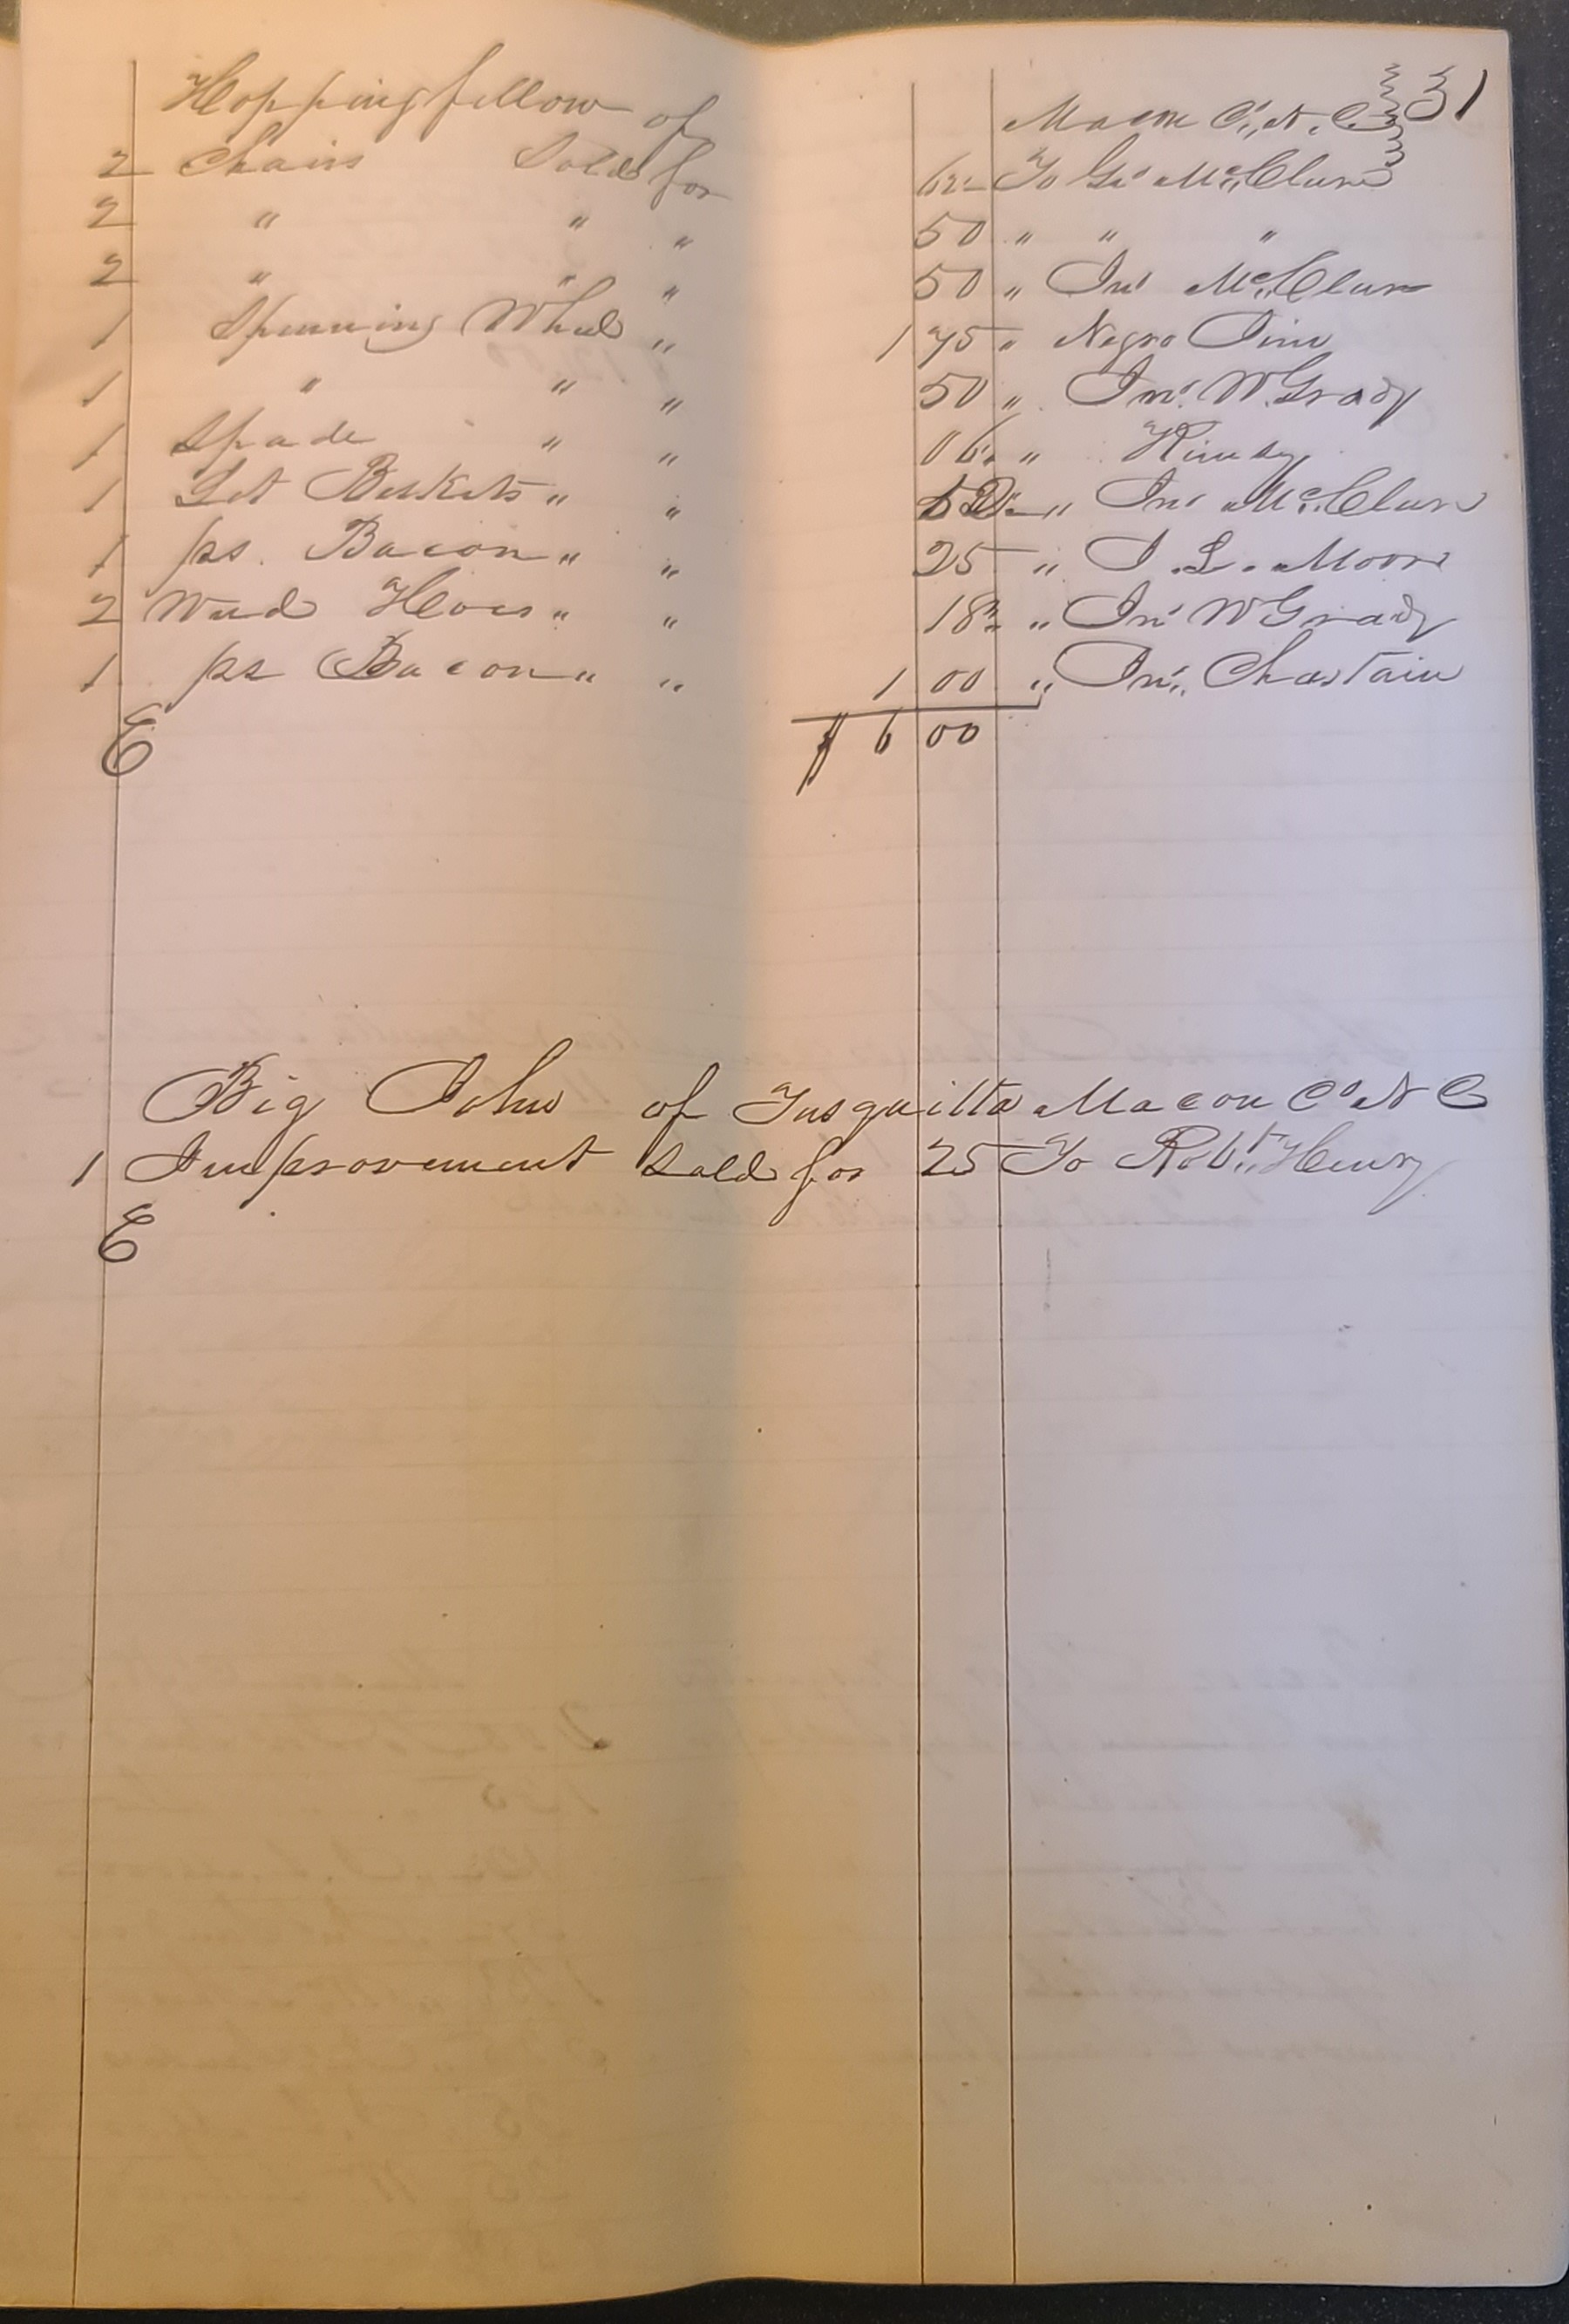 31
Hoppingfellow of Macon Co. N. C.
2 Chairs Sold for 62 To Go McClure
2 " " " 50 " " "
2 " " " 50 " Jno McClure
1 Spinning Wheel " 1 75 " Negro Jim
1 " " " 50 " Jno. W. Grady
1 Spade " " 06 " Kimsey
1 Set Baskets " " " Jno McClure
1 ps. Bacon " " 25 " J. L. Moore
2 Weed Hoes " " 18 " Jno W Grady
1 ps Bacon " " 1 00 " Jno. Chastain
$ 6 00
E
Big John of Tusquitta Macon Co N C
1 Improvement Sold for 25 To Robt. Henry
E